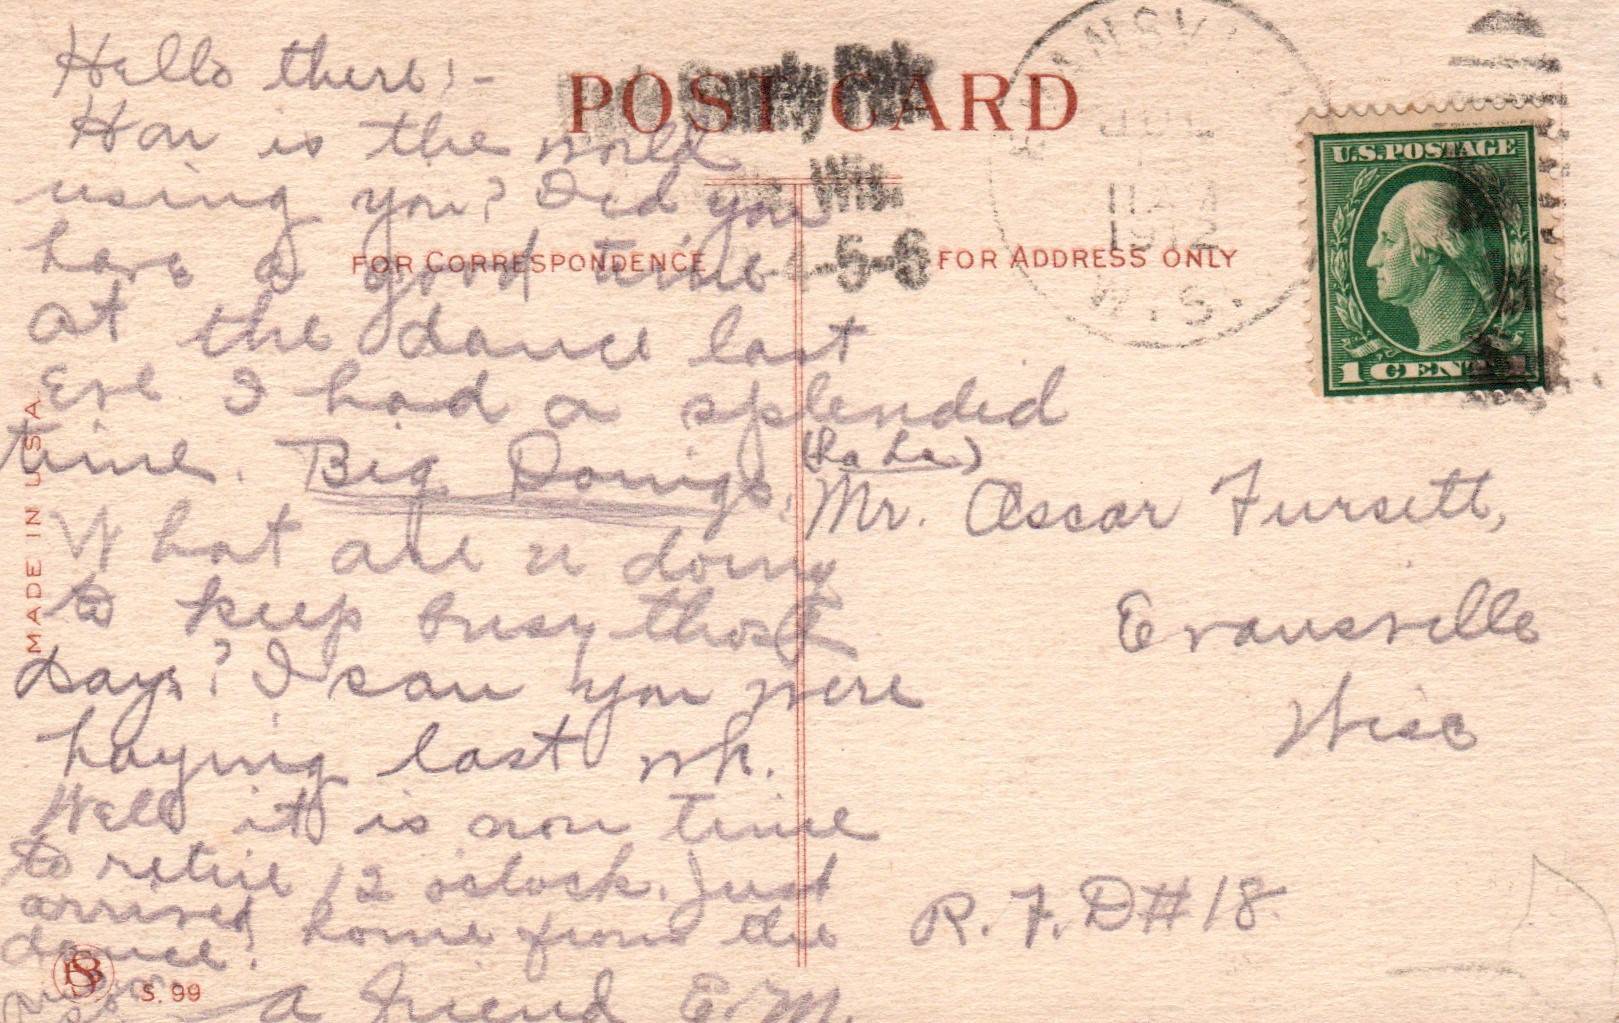 POST CARD
FOR CORRESPONDENCE
FOR ADDRESS ONLY
Hello there:-
How is the world
using you? Did you
have a good time
at the dance last
Eve I had a splendid
time. Big Doings. (ha ha)
What are u doing
to keep busy thost
days? I saw you were
haying last wk.
Well it is now time
to retire 12 o'clock. Just
arrived home from the
dance!
A friend E.M.
Mr. Oscar Fursett,
Evansville
Wisc
R.F.D# 18
U.S.POSTAGE
1 CENT
EVANSVILLE
JUL
11 AM
1912
WIS.
Wis.
5-6
MADE IN U.S.A.
S. 99